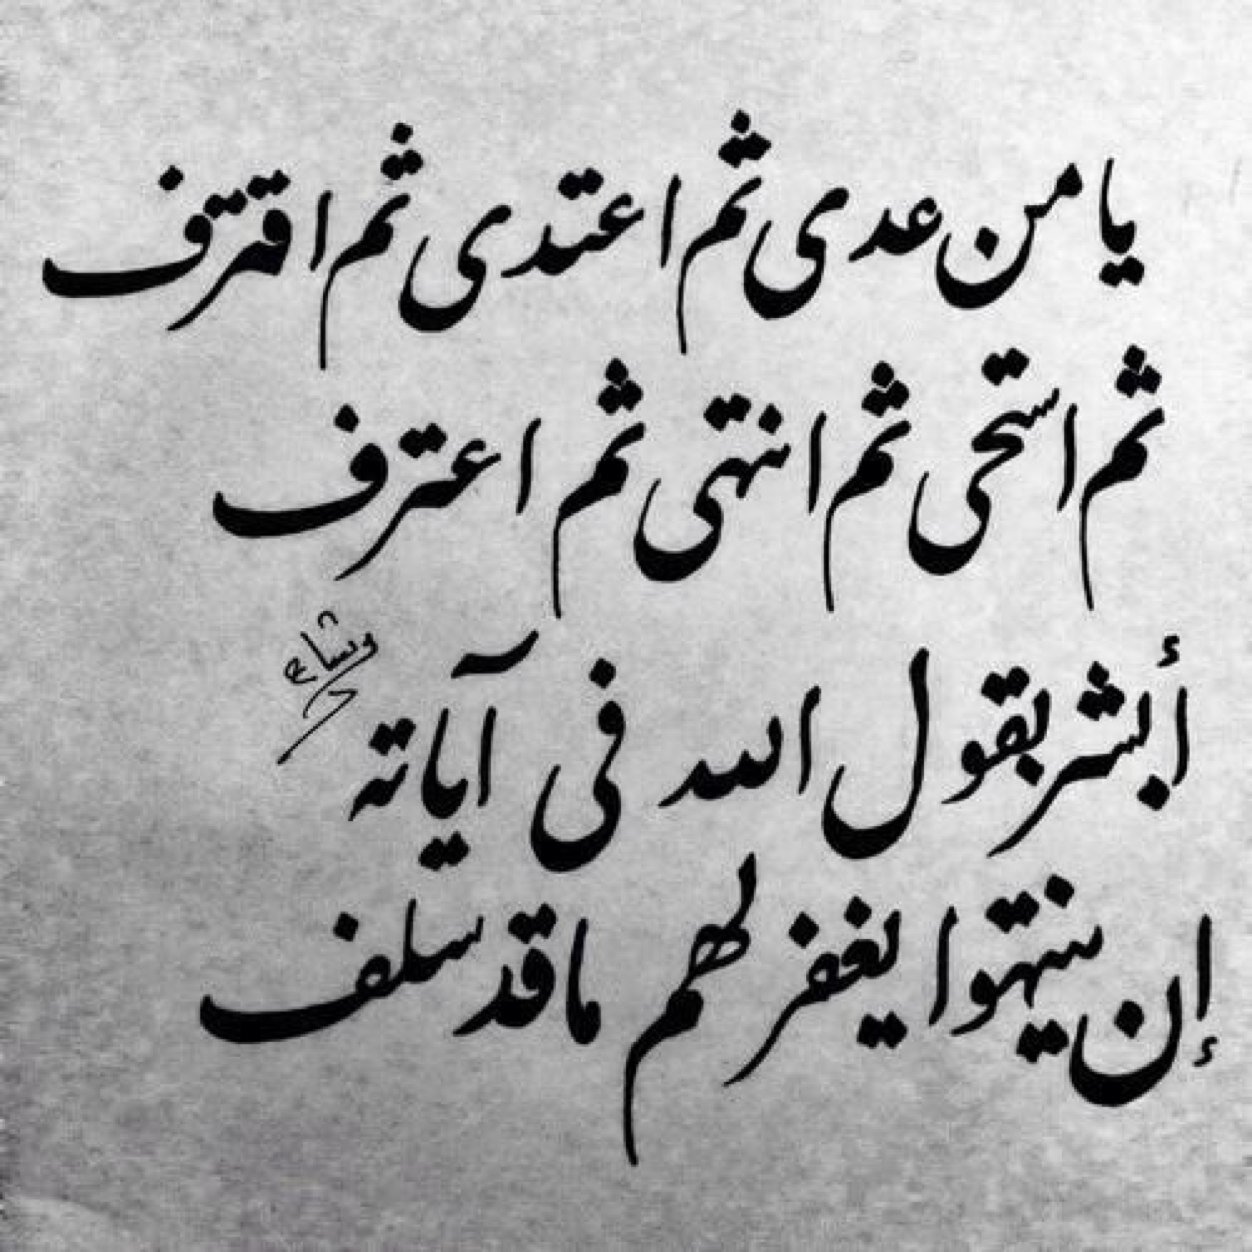 يا من عدى ثم اعتدى ثم اقترف
ثم استحى ثم انتهى ثم اعترف
أبشر بقول الله فى آياته
وسام
إن ينتهوا يغفر لهم ما قد سلف